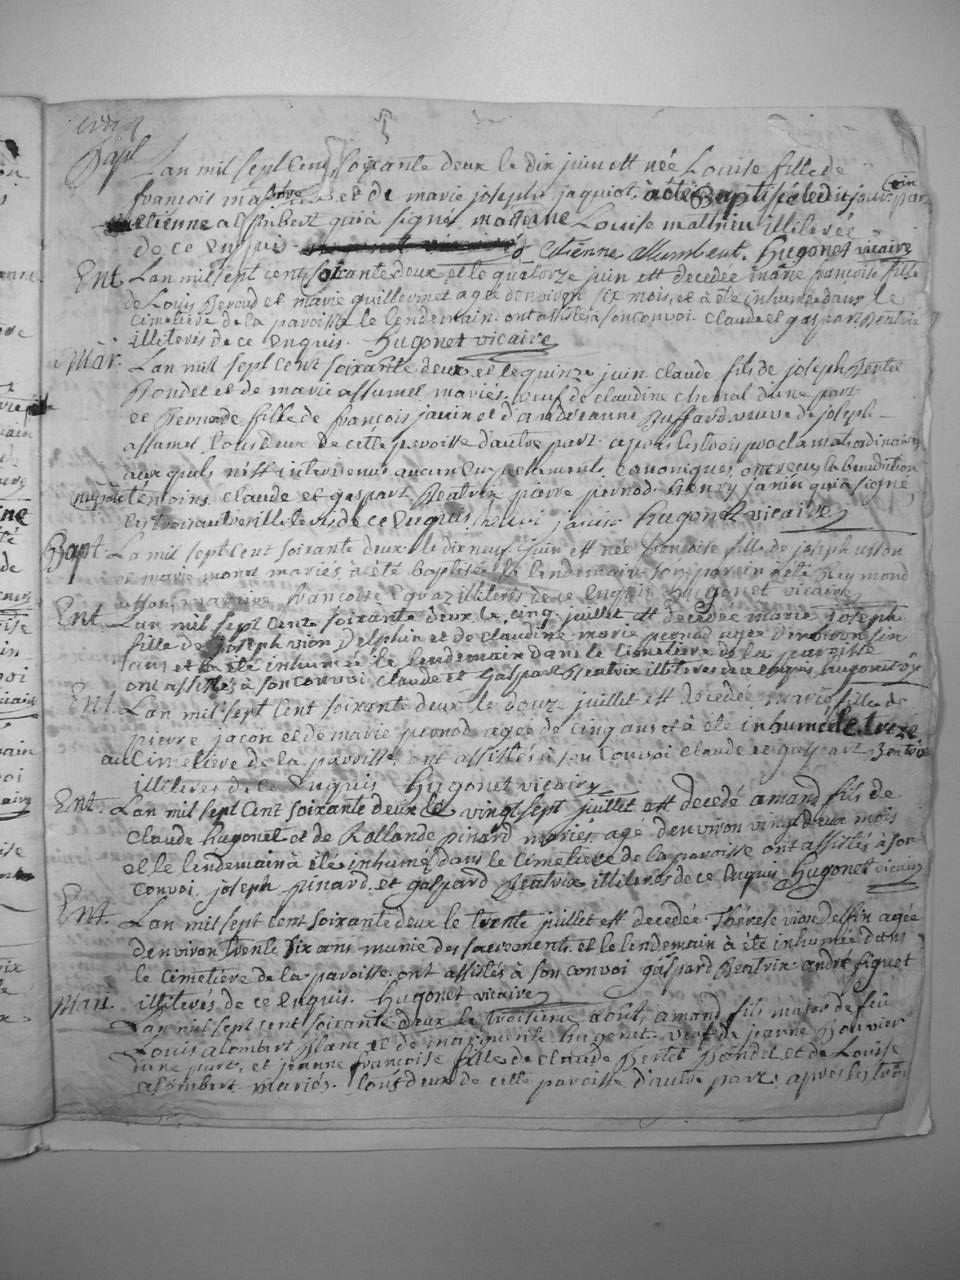 Bapt Lan mil sept cent soixante deux le dix juin est née Louise fille de
françois et de marie josephe jaquiot a eté Baptisée ledit jour parin
etienne alombert qui a signé maraine Louise mathieu illiterée
de ce enquis Etienne allombert. hugonet vicaire
Ent Lan mil sept cent soixante deux et le quatorze juin est decedée marie françoise fille
de Louis et marie guillermet agée denviron six mois, et a été inhumée dans le
cimetiere de la paroisse le lendemain ont assisté a son convoi claude et gaspart Beatrix
illiterés de ce enquis. hugonet vicaire
Mar. Lan mil sept cent soixante deux et le quinze juin claude fils de joseph Bertet
Bondet et de marie assumel mariés veuf de claudine chenal dune part
et fille de françois janin et dandréanne Buffard veuve de joseph
assumel tous deux de cette paroisse dautre part apres les trois proclamations ordinaires
aux quels nest intervenus aucun enpechements canoniques ont reçus la benediction
nuptiale temoins claude et gaspart Beatrix pierre pernod henry janin qui a signé
les trois autres illiterés de ce enquis henri janin hugonet vicaire
Bapt La mil sept cent soixante deux le dix neuf juin est née françoise fille de joseph
et marie monet mariés a été baptisée le lendemain son parin a été Reymond
maraine françoise illiterés de ce enquis hugonet vicaire
Ent Lan mil sept cent soixante deux le cinq juillet est decedée marie joseph
fille de joseph vion delphin et de claudine marie pernod agée denviron six
ans et a été inhumée le lendemain dans le cimetiere de la paroisse
ont assistés a son convoi claude et gaspart Beatrix illiterés de ce enquis hugonet vic
Ent Lan mil sept cent soixante deux le douze juillet est decedée marie fille de
pierre jacon et de marie pernod agée de cinq ans et a été inhumée le treze
au cimetiere de la paroisse ont assistés a son convoi claude et gaspart Beatrix
illiteres de ce enquis hugonet vicaire
Ent. Lan mil sept cent soixante deux et vingt sept juillet est decedé amand fils de
claude hugonet et de Rollande pinard mariés agé denviron vingt deux mois
et le lendemain a été inhumé dans le cimetiere de la paroisse ont assistés a son
convoi joseph pinard et gaspard Beatrix illiterés de ce enquis hugonet vicaire
Ent. Lan mil sept cent soixante deux le trente juillet est decedée thérese vion delfin agée
denviron trente six ans munie des sacrements et le lendemain a été inhumée dans
le cimetiere de la paroisse ont assistés a son convoi gaspard Beatrix andré figuet
illiterés de ce enquis. hugonet vicaire
Mari Lan mil sept cent soixante deux le troisieme aout, amand fils major de feu
Louis alombert Blanc et de marguerite hugonet veuf de jeanne Bouvier
dune part, et jeanne françoise fille de claude Bertet Bondet et de Louise
alombert mariés. tous deux de cette paroisse dautre part apres les trois